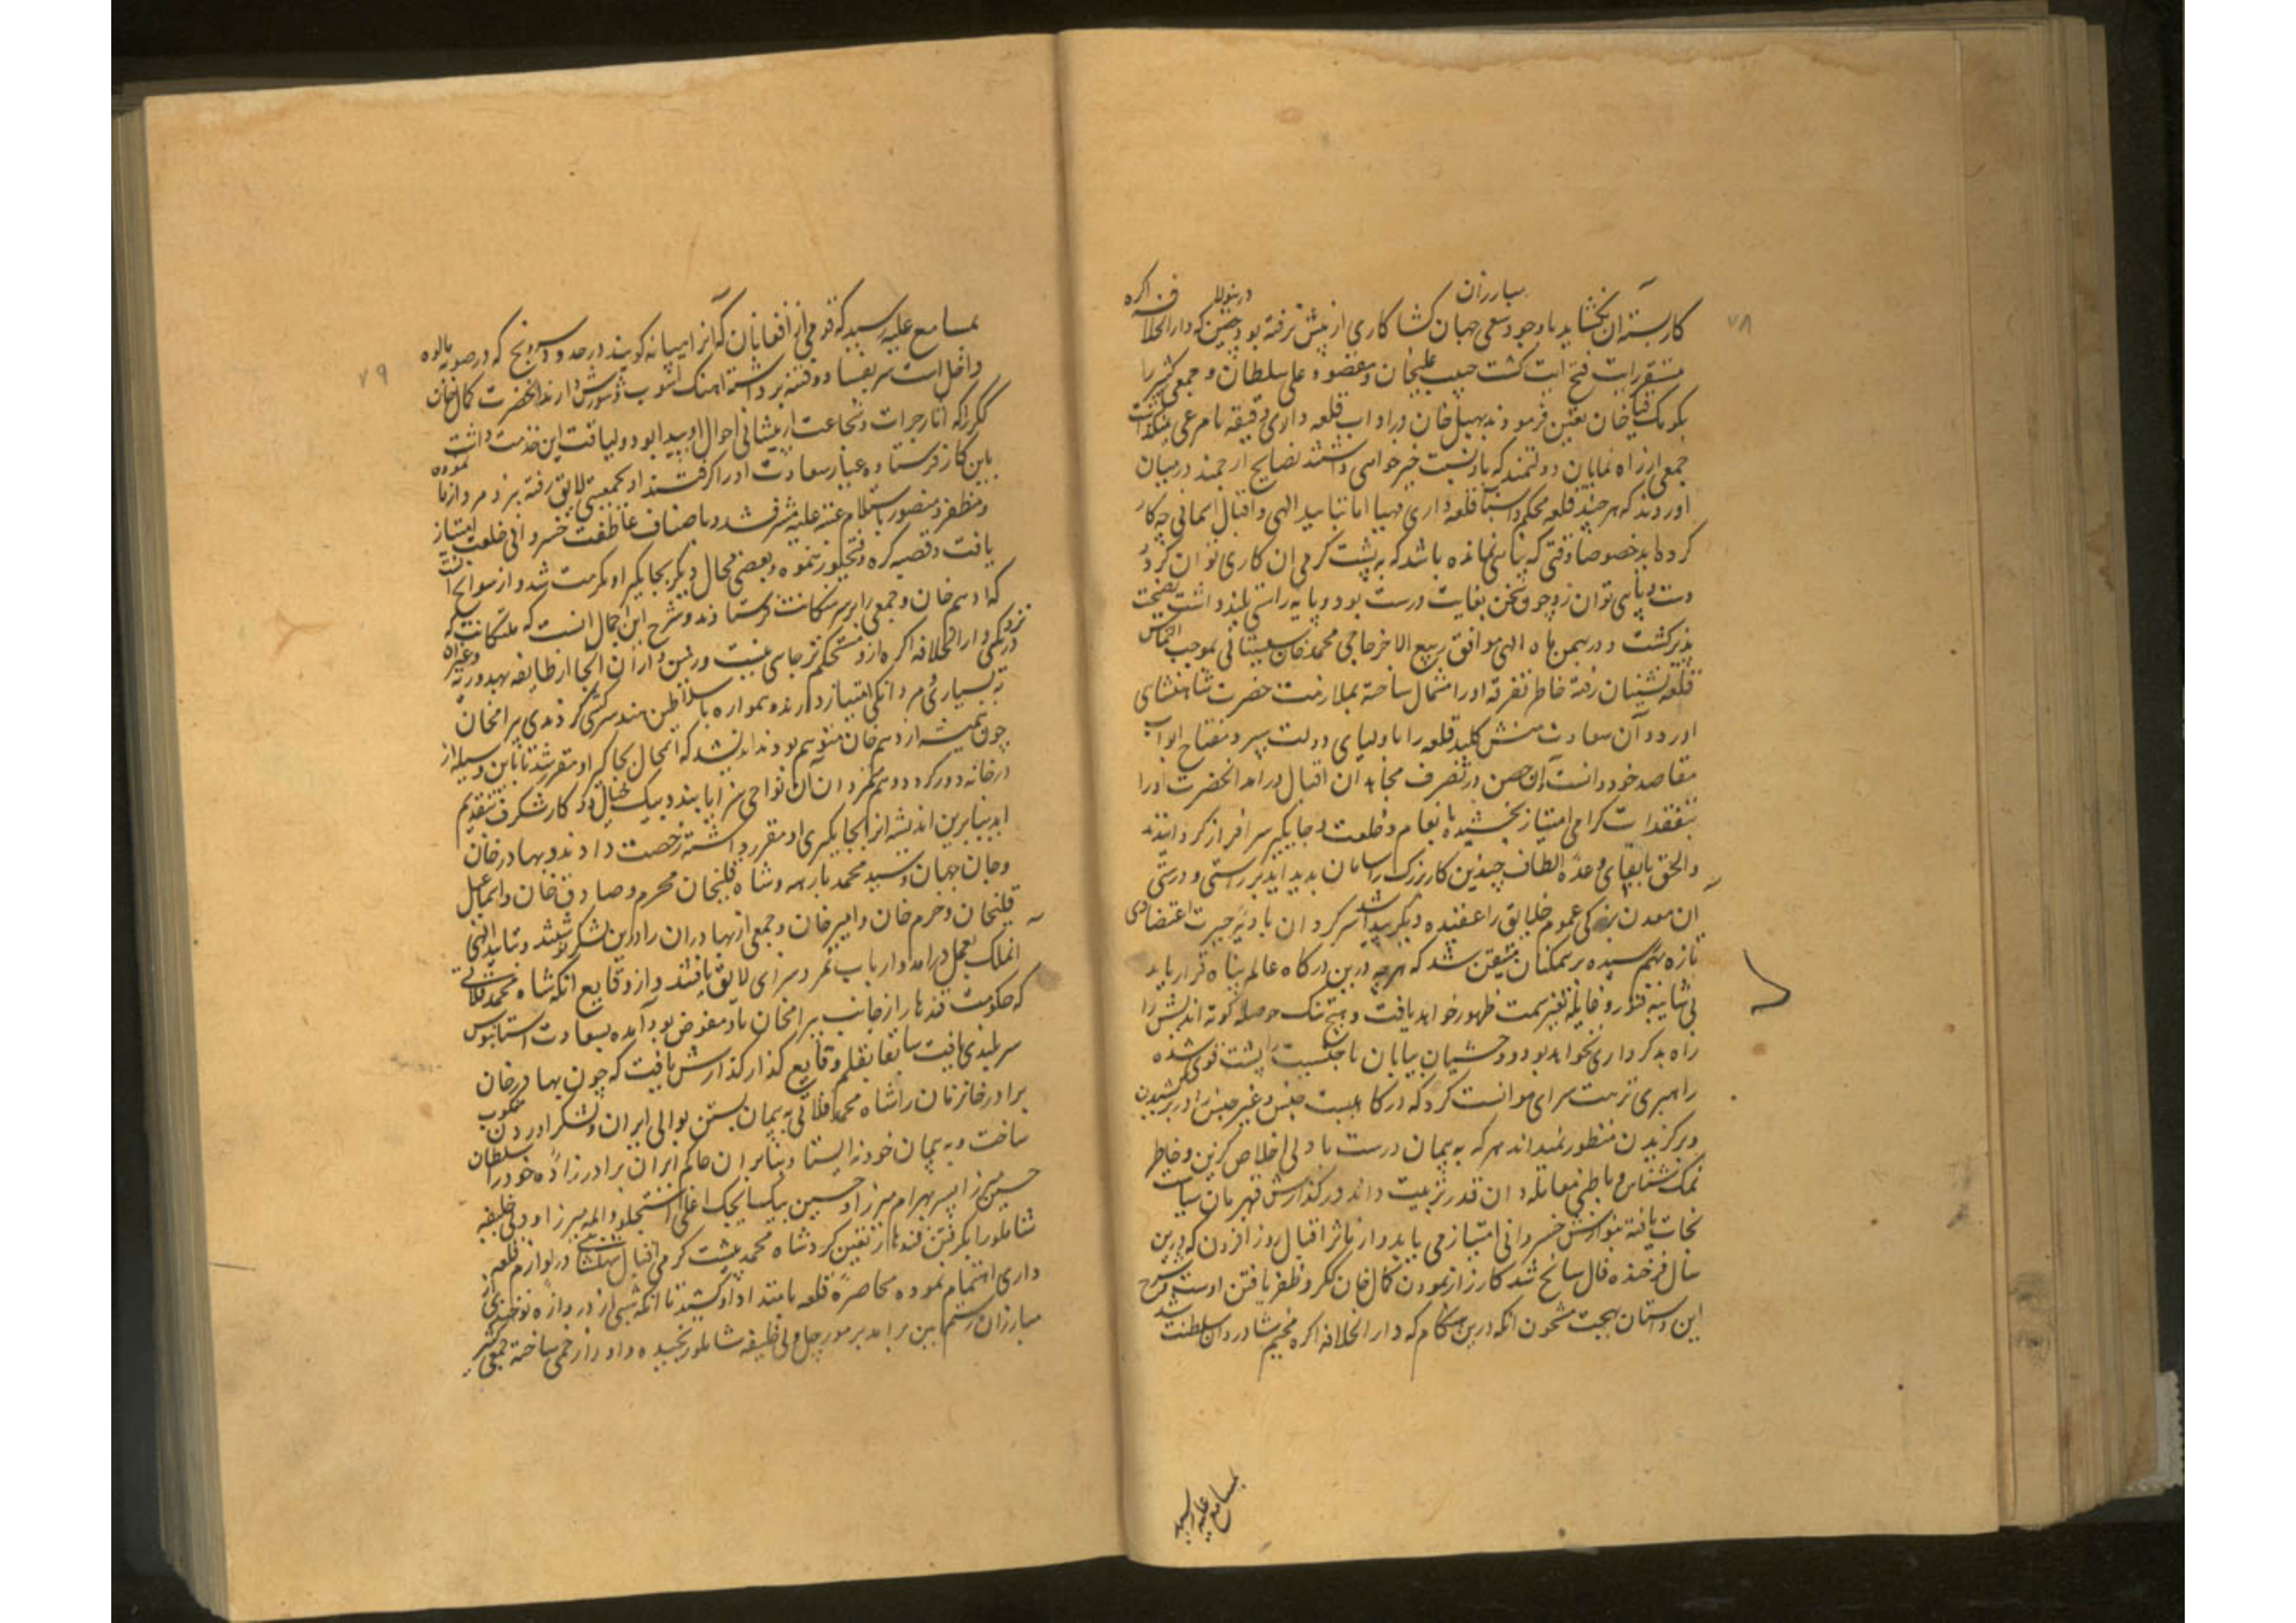 ۷۸
کار بسته ان نکشاید باوجود سعی مبارزان جهان کشا کاری از پیش نرفته بود درینولا چنین که دارالخلافه اکره
مستقر رایات فتح ایات کشت حبیب علیخان ومقصود علی سلطان و جمعی کثیر را
بکومک قیاخان تعین فرمودند بهبل خان دراداب قلعه داری دقیقه نامرعی نمیکذاشت
جمعی از راه نمایان دولتمند که باو نسبت خیرخواهی داشتند نصایح ارجمند درمیان
اوردند که هرچند قلعه محکم واسباب قلعه داری مهیا اما بتایید الهی واقبال اسمانی چه کار
کرده اید خصوصا وقتی که پناهی نمانده باشد که به پشت کرمی ان کاری توان کرد و
دست وپای توان زد چو سخن بغایت درست بود و پایه راستی بلند داشت نصیحت
پذیر کشت و در بهمن ماه الهی موافق ربیع الاخر حاجی محمد خان سیستانی بموجب التماس
قلعه نشینان رفته خاطر تفرقه اورا مشمال ساخته بملازمت حضرت شاهنشاهی
اورد و آن سعادت منش کلید قلعه را باولیای دولت سپرد مفتاح ابواب
مقاصد خود دانست وآن حصن در تصرف مجاهدان اقبال درامد انحضرت اورا
بتفقدات کرامی امتیاز بخشیده بانعام وخلعت وجایکیر سرافراز کردانیدند
والحق بایفای وعده الطاف چندین کار بزرک را سامان پدید اید بر راستی و درستی
ان معدن بزرکی عموم خلایق را عقیده دیکر پیدا شد سرکردان بادیه حیرت اعتضادی
تازه بهم رسیده بر همکنان متیقن شد که هرچه درین درکاه عالم پناه قرار یابد
بی شایبه فتور و غایله تغیر سمت ظهور خواهد یافت و هیچ تنک حوصله کوته اندیش را
راه بدکرداری نخواهد بود و وحشیان بیابان ناجنسیت را پشت قوی شده
راهبری تربت سرای موانست کرد که درکاهیست جنس و غیر جنس را در برکشیدن
وبرکزیدن منظور نمیداند هرکه به پیمان درست با دلی اخلاص کزین وخاطر
نمک شناس وباطنی معامله دان قدر تربیت داند در کذارش قهرمان سیاست
نجات یافته بنوازش خسروانی امتیاز می یابد واز ماثر اقبال روزافزون که درین
سال فرخنده فال سانح شد کارزار نمودن کمال خان ککر و ظفر یافتن اوست شرح
این داستان بهجت مشحون انکه درین هنکام که دارالخلافه اکره مخیم سرادقات سلطنت شد
بمسامع علیه رسید
۷۹
بمسامع علیه رسید که قومی از افغانان که آنرا میانه کویند در حدود سرونج که در صوبه مالوه
داخل است سر بفساد و فتنه برداشته اهنک اشوب وشورش دارند انحضرت کمال خان
ککر را که اثار جرات وشجاعت از پیشانی احوال او پیدا بود ولیاقت این خدمت داشت
باین کار فرستاده عیار سعادت اورا کرفتند او بجمعیتی لایق رفته نبرد مردازما نموده
ومظفر ومنصور باستلام عتبه علیه مشرف شد و باصناف عاطفت خسروانی خلعت امتیاز
یافت وقصبه کره وفتحپور هنسوه وبعضی محال دیکر بجایکیر او مکرمت شد و از سوانح انست
که ادهم خان وجمعی را بر سر هتکانت فرستادند وشرح این اجمال انست که هتکانت که
نزدیکی دارالخلافه اکره ازو مستحکم تر جای نیست ورئیس داران انجا از طایفه بهدوریه وغیران
به بسیاری ومردانکی امتیاز دارند وهمواره باسلاطین هند سرکشی کردندی بیرامخان
چون همیشه از ادهم خان متوهم بودند اندیشید که انمحال بجاکیر او مقرر شد تا باین وسیله از
درخانه دور کردد و هم متمردان آن نواحی سزا یابند وبیک خیال دو کار شکرف بتقدیم
اید بنابرین اندیشه انرا بجایکیری او مقرر داشته رخصت دادند وبهادرخان
وخان جهان وسید محمد بارهه وشاه قلیخان محرم وصادق خان واسمعیل
قلیخان وخرم خان وامیرخان وجمعی از بهادران را درین لشکر نوشتند وبتایید الهی
انملک بعمل درامد وارباب تمرد سزای لایق یافتند واز وقایع انکه شاه محمد قلاتی
که حکومت قندهار از جانب بیرامخان باو مفوض بود آمده بسعادت استانبوس
سربلندی یافت سابقا بقلم وقایع کذار کذارش یافت که چون بهادرخان
برادر خانزمان را شاه محمد قلاتی به پیمان بستن بوالی ایران ولشکر اوردن منکوب
ساخت وبه پیمان خود نه ایستاد وبنابران حاکم ایران برادرزاده خود را سلطان
حسین میرزا پسر بهرام میرزا وحسین بیک ایجک اغلی استجلو واله میرزا و ولی خلیفه
شاملو را بکرفتن قندهار تعین کرد شاه محمد بپشت کرمی اقبال شاهنشاهی در لوازم قلعه
داری اهتمام نموده محاصره قلعه بامتداد کشید تا انکه شبی از دروازه نو جندی از
مبارزان رستم بین برامد بر مورچل ولی خلیفه شاملو ریخته داد را زخمی ساخته جمعی کثیر